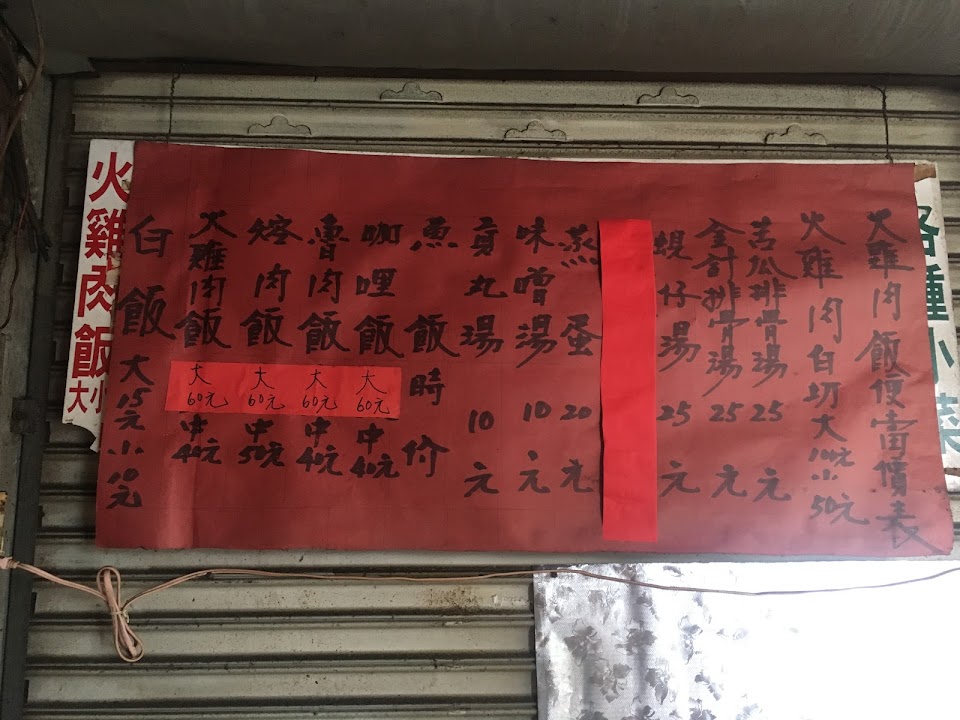 火雞肉飯便當價表
火雞肉白切大100元小50元
苦瓜排骨湯25元
金針排骨湯25元
蜆仔湯25元
蒸蛋20元
味噌湯10元
貢丸湯10元
魚飯時价
咖哩飯大60元中40元
魯肉飯大60元中40元
焢肉飯大60元中50元
火雞肉飯大60元中40元
白飯大15元小10元
火雞肉飯大小
各種小菜